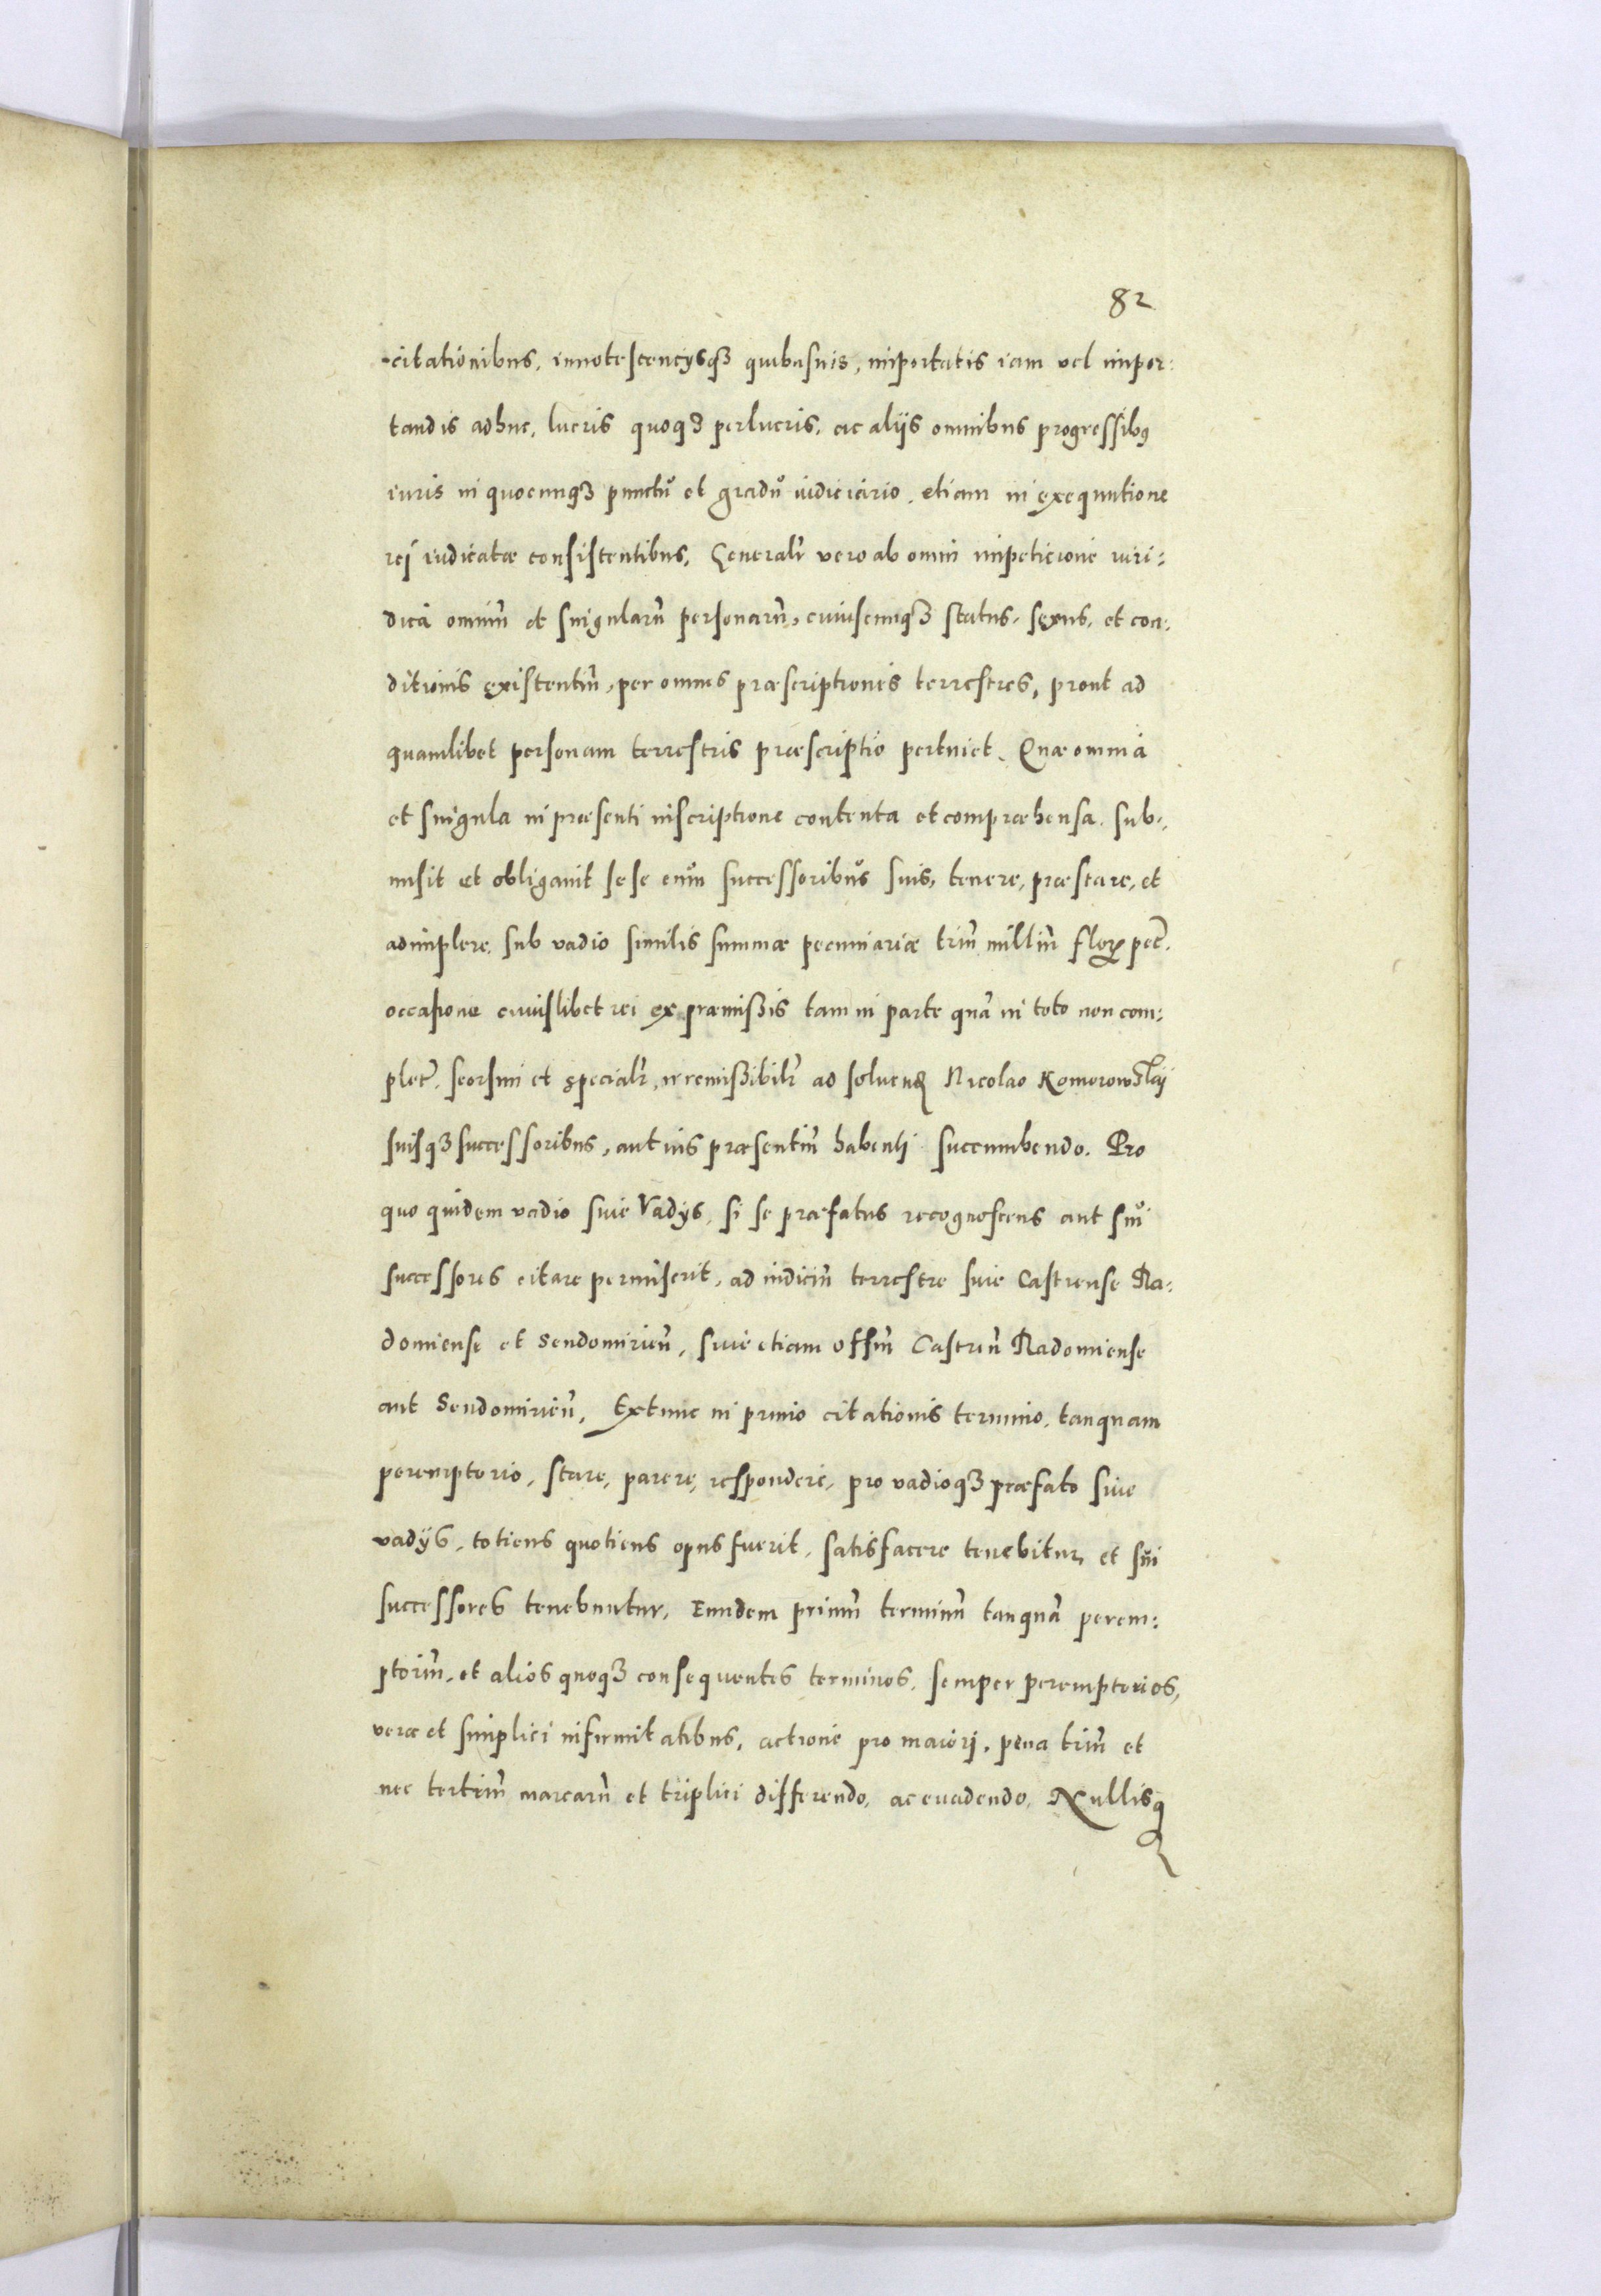 82
-citationibus, innotescencysqꝫ quibusuis, importatis iam vel impor:
tandis adhuc, lucris quoqꝫ perlucris, ac aliis omnibus progressibꝰ
iuris in quocunqꝫ punctu et gradu iudiciario, etiam in exequutione
rei iudicatæ consistentibus, Generalr̃ vero ab omni impeticione iuri:
dica omniũ et singularũ personarũ, cuiuscunqꝫ status, sexus, et con:
ditionis existentiũ, per omnes præscriptiones terrestres, prout ad
quamlibet personam terrestris præscriptio pertinet. Quæ omnia
et singula in præsenti inscriptione contenta et compræhensa, sub:
misit et obligauit sese cum successoribus suis, tenere, præstare, et
adimplere, sub vadio similis summæ pecuniariæ triũ milliũ florꝝ pec̃.
occasione cuiuslibet rei ex præmißis tam in parte quã in toto non com:
plet̃. seorsim et specialr̃, irremißibilr̃ ad soluenđ Nicolao Komorowskÿ
suisqꝫ successoribus, aut ius præsentiũ habenti succumbendo. Pro
quo quidem vadio siue Vadÿs, si se præfatus recognoscens aut sui
successores citare permiserit, ad iudiciũ terrestre siue Castrense Ra:
domiense et Sendomirieñ, siue etiam offm̃ Castreñ Radomiense
aut Sendomirieñ, Extunc in primo citationis termino, tanquam
peremptorio, stare, parere, respondere, pro vadioqꝫ præfato siue
vadÿs, totiens quotiens opus fuerit, satisfacere tenebitur, et sui
successores tenebuntur, Eundem primũ terminũ tanquã perem:
ptoriũ, et alios quoqꝫ consequentes terminos, semper peremptorios,
vera et simplici infirmitatibus, actione pro maiori, pena triũ et
nec tertiũ marcarũ et triplici differendo, ac euadendo, Nullisq